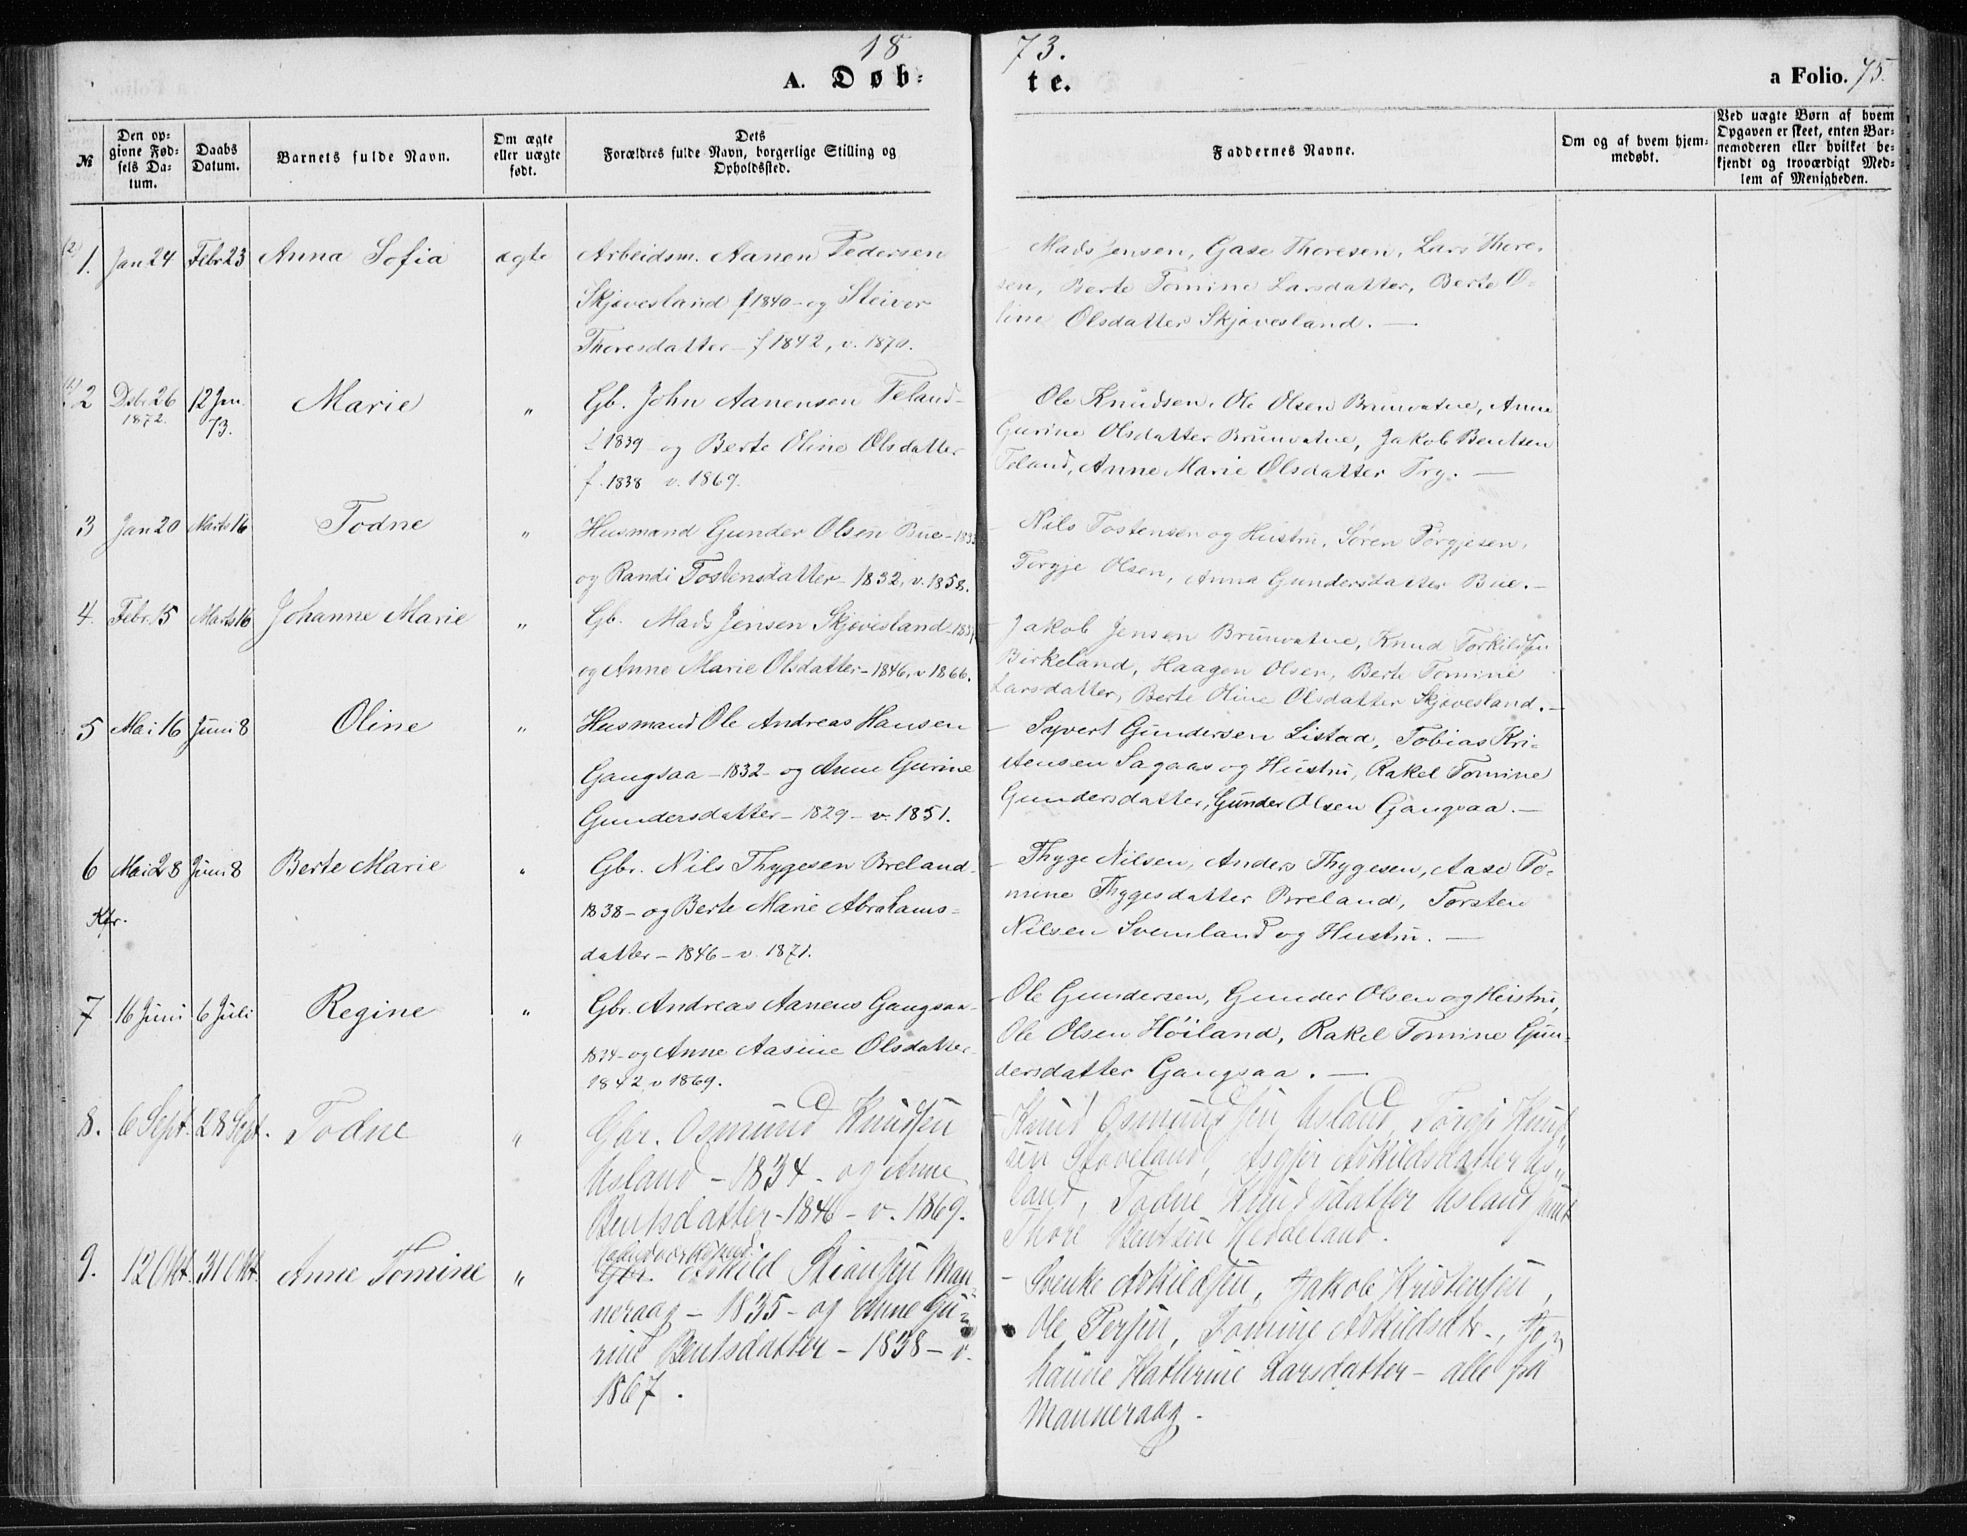 1873.
A. Døbte.
a Folio. 75.
№
Den opgivne Fødsels Datum.
Daabs Datum.
Barnets fulde Navn.
Om ægte eller uægte født.
Dets Forældres fulde Navn, borgerlige Stilling og Opholdssted.
Faddernes Navne.
Om og af hvem hjemmedøbt.
Ved uægte Børn af hvem Opgaven er skeet, enten Barnemoderen eller hvilket bekjendt og troværdigt Medlem af Menigheden.
(2) 1. Jan 24 Febr 23 Anna Sofia ægte
Arbeidsm. Aanen Pedersen
Skjævesland f 1840 - og Steivor
Thoresdatter - f 1842, v. 1870.
Mads Jensen, Gase Thoresen, Lars Thore-
sen, Berte Tomine Larsdatter, Berte O-
line Olsdatter Skjævesland. —
(1) 2 Dsbr 26 1872. 12 Jan. 73. Marie "
Gb. John Aanensen Feland -
f 1839 og Berte Oline Olsdatter
f. 1838 v. 1869.
Ole Knudsen, Ole Olsen Brunvatne, Anne
Gurine Olsdatter Brunvatne, Jakob Bentsen
Feland, Anne Marie Olsdatter Try. —
3 Jan 20 Marts 16 Todne "
Husmand Gunder Olsen Bue - 1833
og Randi Tostensdatter - 1832, v. 1858.
Nils Tostensen og Hustru, Søren Torgjesen,
Torgje Olsen, Anna Gundersdatter Bue. —
4. Febr. 15 Marts 16 Johanne Marie "
Gb. Mads Jensen Skjævesland -
og Anne Marie Olsdatter - 1846, v. 1866.
Jakob Jensen Brunvatne, Knud Torkildsen
Birkeland, Haagen Olsen, Berte Tomine
Larsdatter, Berte Oline Olsdatter Skjævesland. —
5 Mai 16 Juni 8 Oline "
Husmand Ole Andreas Hansen
Gangsaa - 1832 - og Anne Gurine
Gundersdatter - 1829 - v. 1851.
- Syvert Gundersen Listad, Tobias Kri-
stensen Sagaas og Hustru, Rakel Tomine
Gundersdatter, Gunder Olsen Gangsaa. —
6 Mai 28 Juni 8 Berte Marie "
Kfr.
Gbr. Nils Thygesen Breland -
1838 - og Berte Marie Abrahams-
datter - 1846 - v. 1871.
- Thyge Nilsen, Anders Thygesen, Aase To-
mine Thygesdatter Breland, Torsten
Nilsen Svenland og Hustru. —
7 16 Juni 6 Juli Regine "
Gbr. Andreas Aanens Gangsaa -
1824 - og Anne Aasine Olsdatter
1842 v 1869.
- Ole Gundersen, Gunder Olsen og Hustru,
Ole Olsen Høiland, Rakel Tomine Gun-
dersdatter Gangsaa. —
8. 6 Sept. 28 Sept. Todne "
Gbr. Osmund Knudsen
Usland - 1834 - og Anne
Bentsdatter - 1846 - v. 1869.
- Knud Osmundsen Usland, Torgje Knud-
sen Støveland, Asgjer Askildsdatter Us-
land, Todne Knudsdatter Usland samt
Thore Bentsen Heddeland.
9. 12 Okt. 31 Okt. Anne Tomine "
Gbr. Askild Stiansen Man-
neraag - 1835 - og Anne Gu-
rine Bentsdatter - 1838 - v.
1867.
- Svenke Askildsen, Jakob Kristensen,
Ole Persen, Tomine Askildsdtr., Jo-
hanne Kathrine Larsdatter - alle fra
Manneraag.